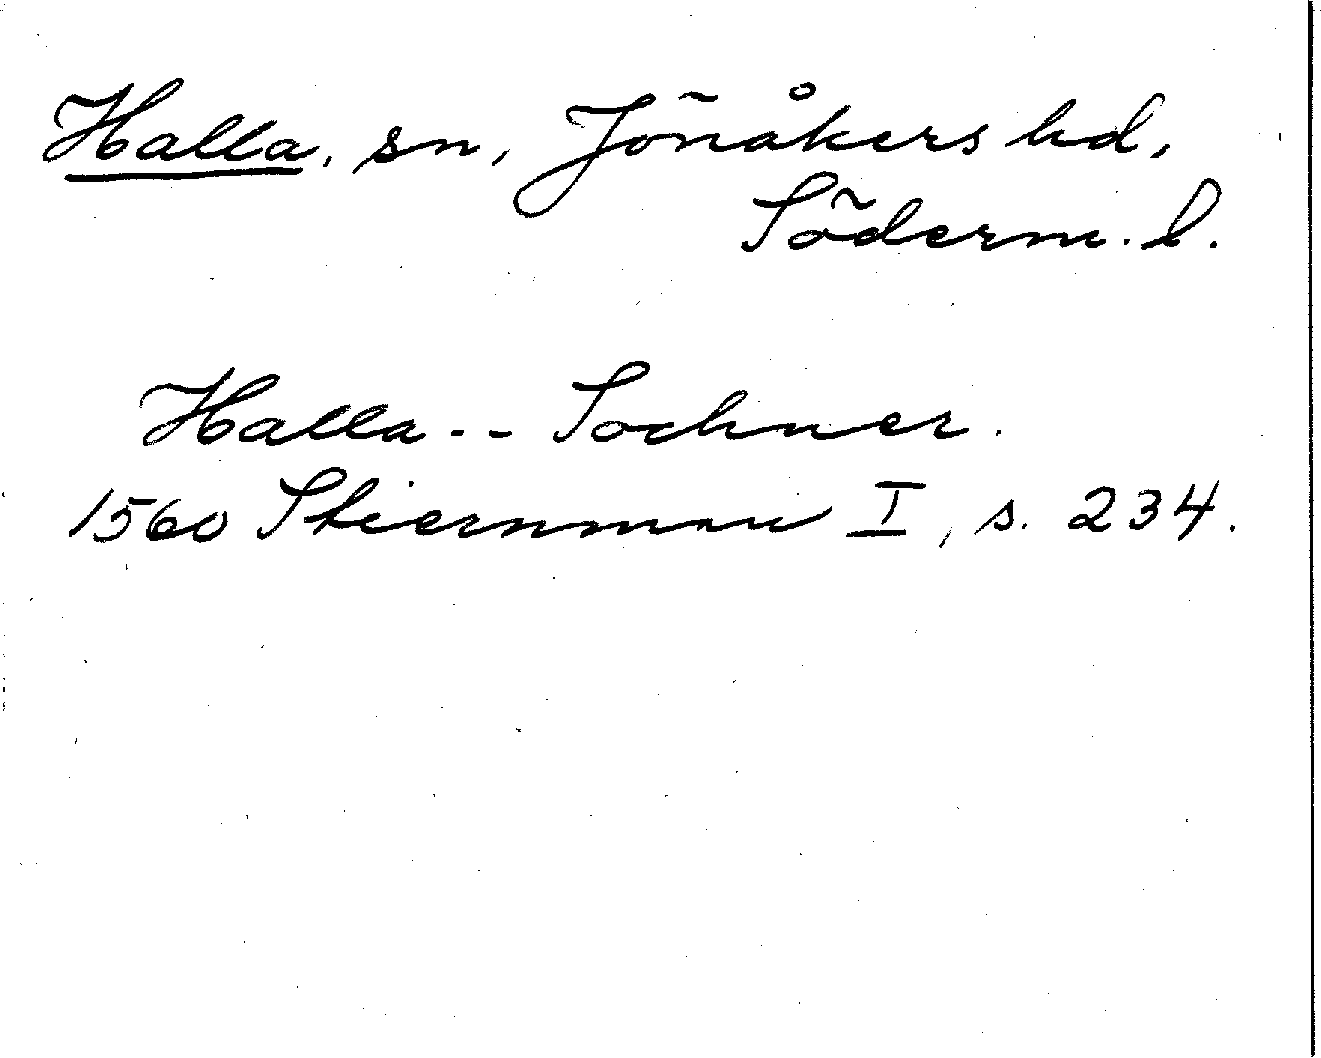 Halla, sn, Jönåkers hd,
Söderm. l.
Halla -- Sochner.
1560 Stiernman I, s. 234.